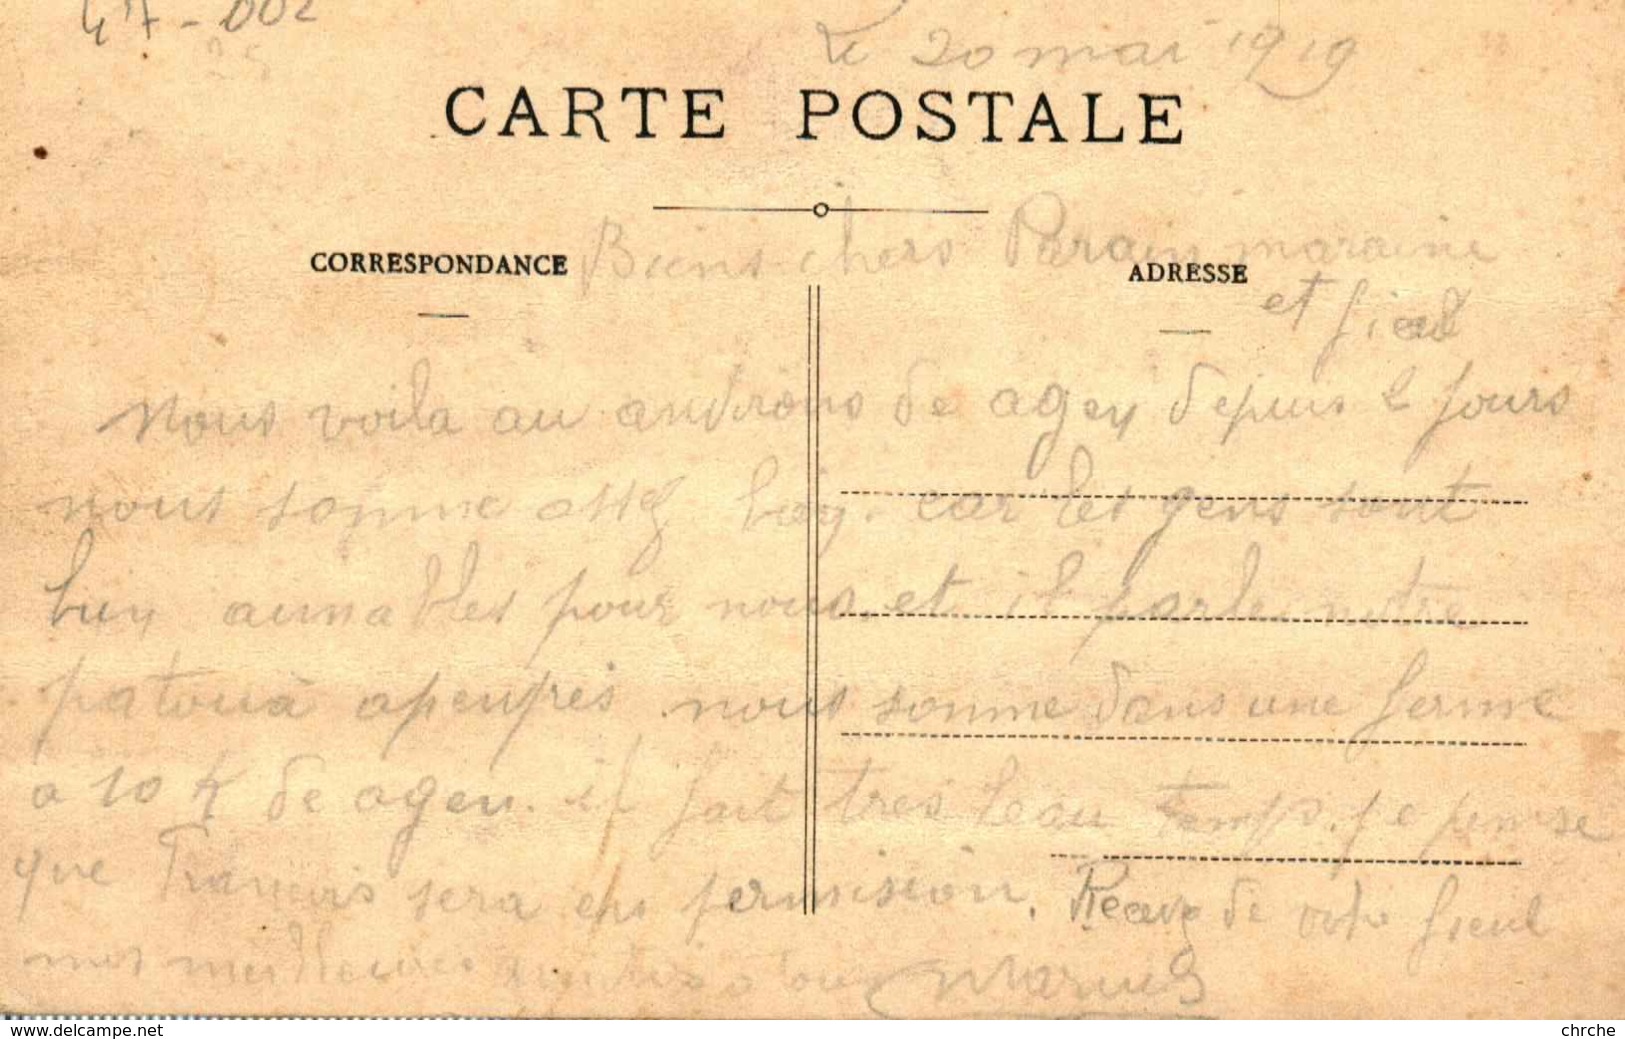 47-002
25
le 20 mai 1919
CARTE POSTALE
Biens chers Parain maraine
CORRESPONDANCE
ADRESSE
et fieul
nous voila au andirons de agen depuis 2 jours
nous somme assez bien. car les gens sont
bien aimables pour nous. et il parle notre
patouà apeuprés nous somme dans une ferme
a 10 K de agen. il fait tres beau temps. je pense
que Francois sera en permision. de votre fieul
mes meilleures a tous Marius
www.delcampe.net
chrche